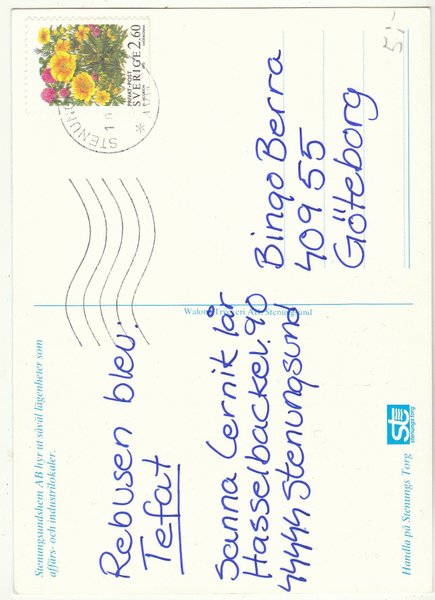 Stenungsundshem AB hyr ut såväl lägenheter som
affärs- och industrilokaler.
Rebusen blev:
Tefat
Sanna Lernik lår
Hasselbacken.90
44444 Stenungsund
Handla på Stenungs Torg
st
Stenungs Torg
Stenungsund
SVERIGE 2.60
PRIVAT-POST
STENUNG
Bingo Berra
409 55
Göteborg
5:-